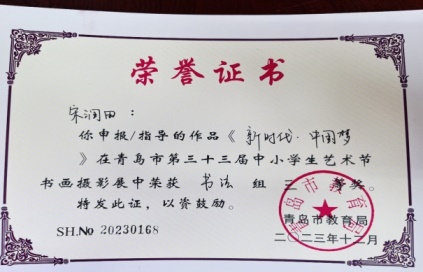 荣誉证书
宋润田：
你申报/指导的作品《 新时代·中国梦
》在青岛市第三十三届中小学生艺术节
书画摄影展中荣获 书法 组 三 等奖。
特发此证，以资鼓励。
青岛市教育局
SH.No 20230168
二〇二三年十二月
青岛市教育局